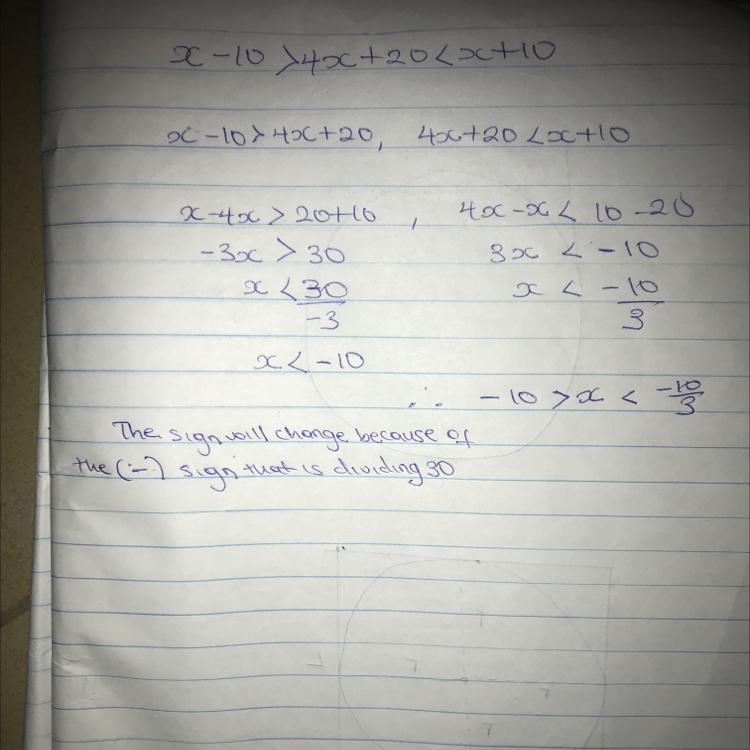 x-10 >4x+20<x+10
x-10>4x+20, 4x+20<x+10
x-4x>20+10, 4x-x< 10-20
-3x > 30 3x < -10
x < 30/-3 x < -10/3
x < -10
∴ -10 > x < -10/3
The sign will change because of
the (-) sign that is dividing 30